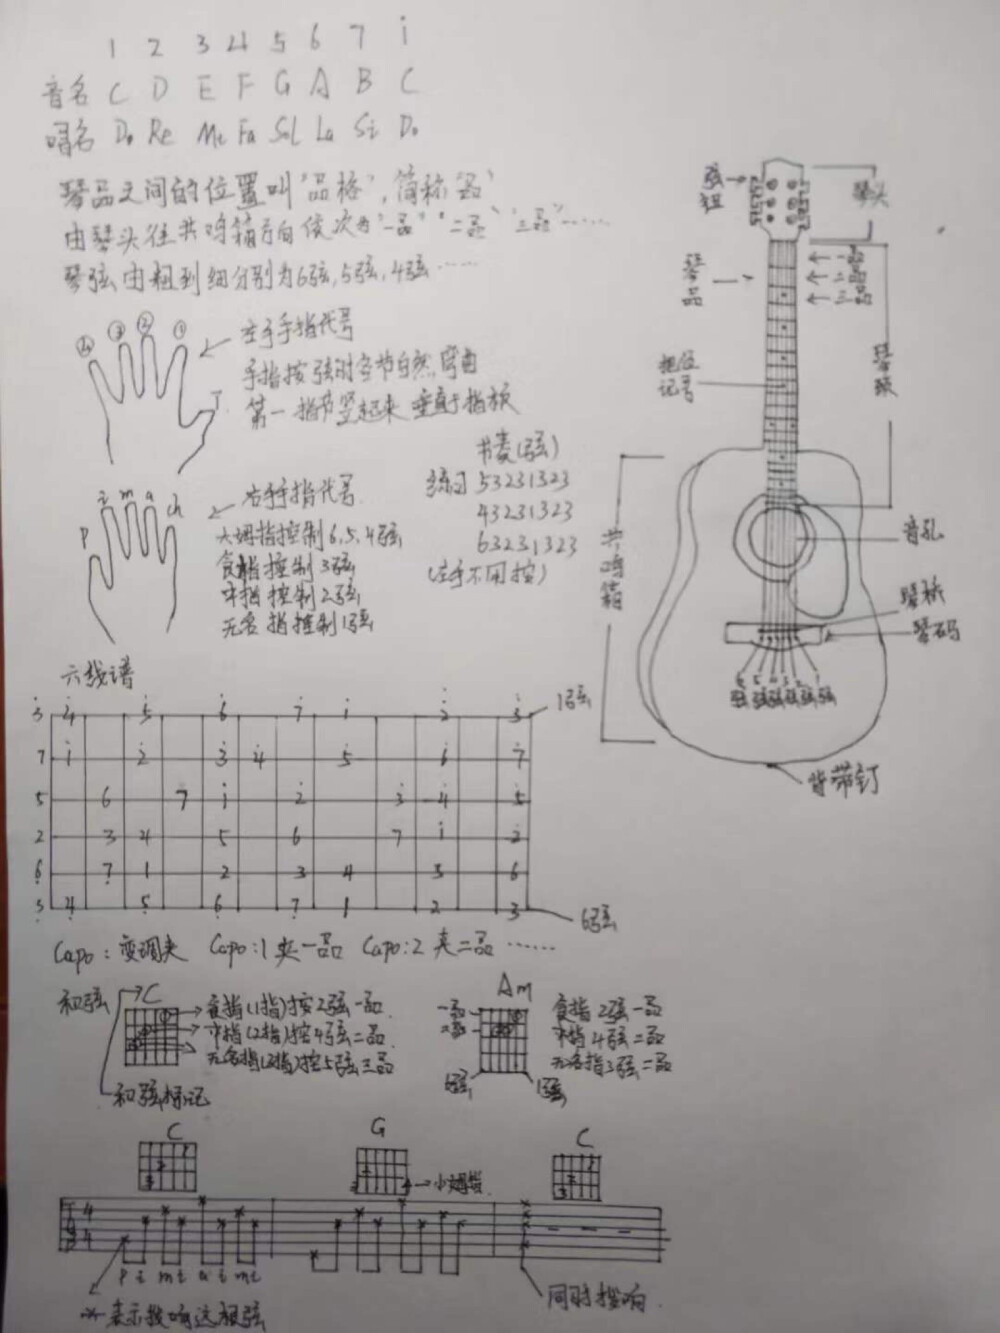 1 2 3 4 5 6 7 i
音名 C D E F G A B C
唱名 Do Re Mi Fa Sol La Si Do
琴品之间的位置叫"品格",简称"品"
由琴头往共鸣箱方向依次为"一品""二品""三品"……
琴弦由粗到细分别为6弦,5弦,4弦……
④ ③ ② ① T
左手手指代号
手指按弦时关节自然弯曲
第一指节竖起来 垂直于指板
P i m a ch
右手手指代号
大拇指控制6,5,4弦
食指控制3弦
中指控制2弦
无名指控制1弦
节奏(弦)
练习 53231323
43231323
63231323
(左手不用按)
弦钮
琴头
琴品
←一品
←二品
←三品
把位记号
琴颈
共鸣箱
音孔
琴桥
琴码
6 5 4 3 2 1
弦 弦 弦 弦 弦 弦
背带钉
六线谱
3 4 5 6 7 1 2 3 1弦
7 1 2 3 4 5 6 7
5 6 7 1 2 3 4 5
2 3 4 5 6 7 1 2
6 7 1 2 3 4 5 6
3 4 5 6 7 1 2 3 6弦
Capo:变调夹 Capo:1 夹一品 Capo:2 夹二品……
和弦 C
食指(1指)按2弦一品
中指(2指)按4弦二品
无名指(3指)按5弦三品
和弦标记
Am
一品
二品
6弦 1弦
食指2弦一品
中指4弦二品
无名指3弦二品
C G C
小拇指
4
4
P i m i a i m i
同时拨响
表示拨响这根弦